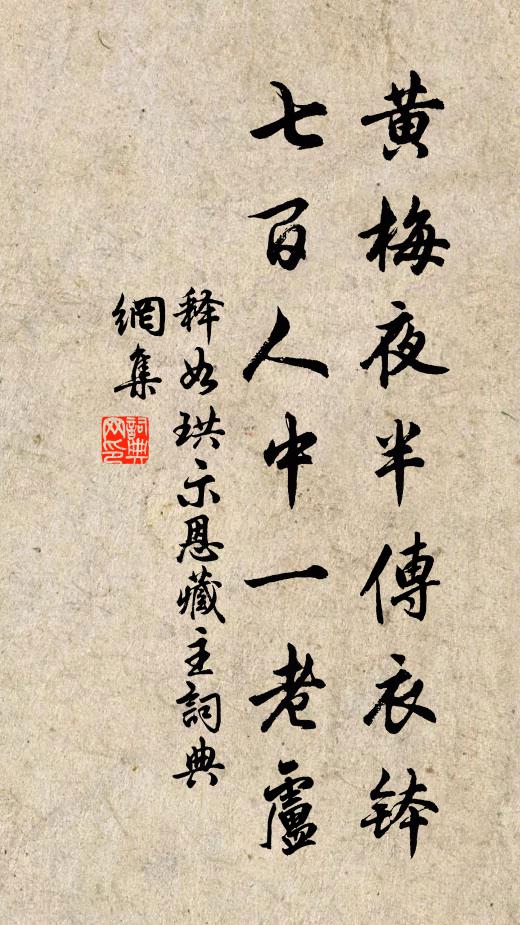 黄梅夜半傳衣鉢
七百人中一老盧
释如珙示恩藏主詞典
網集
詞典網印